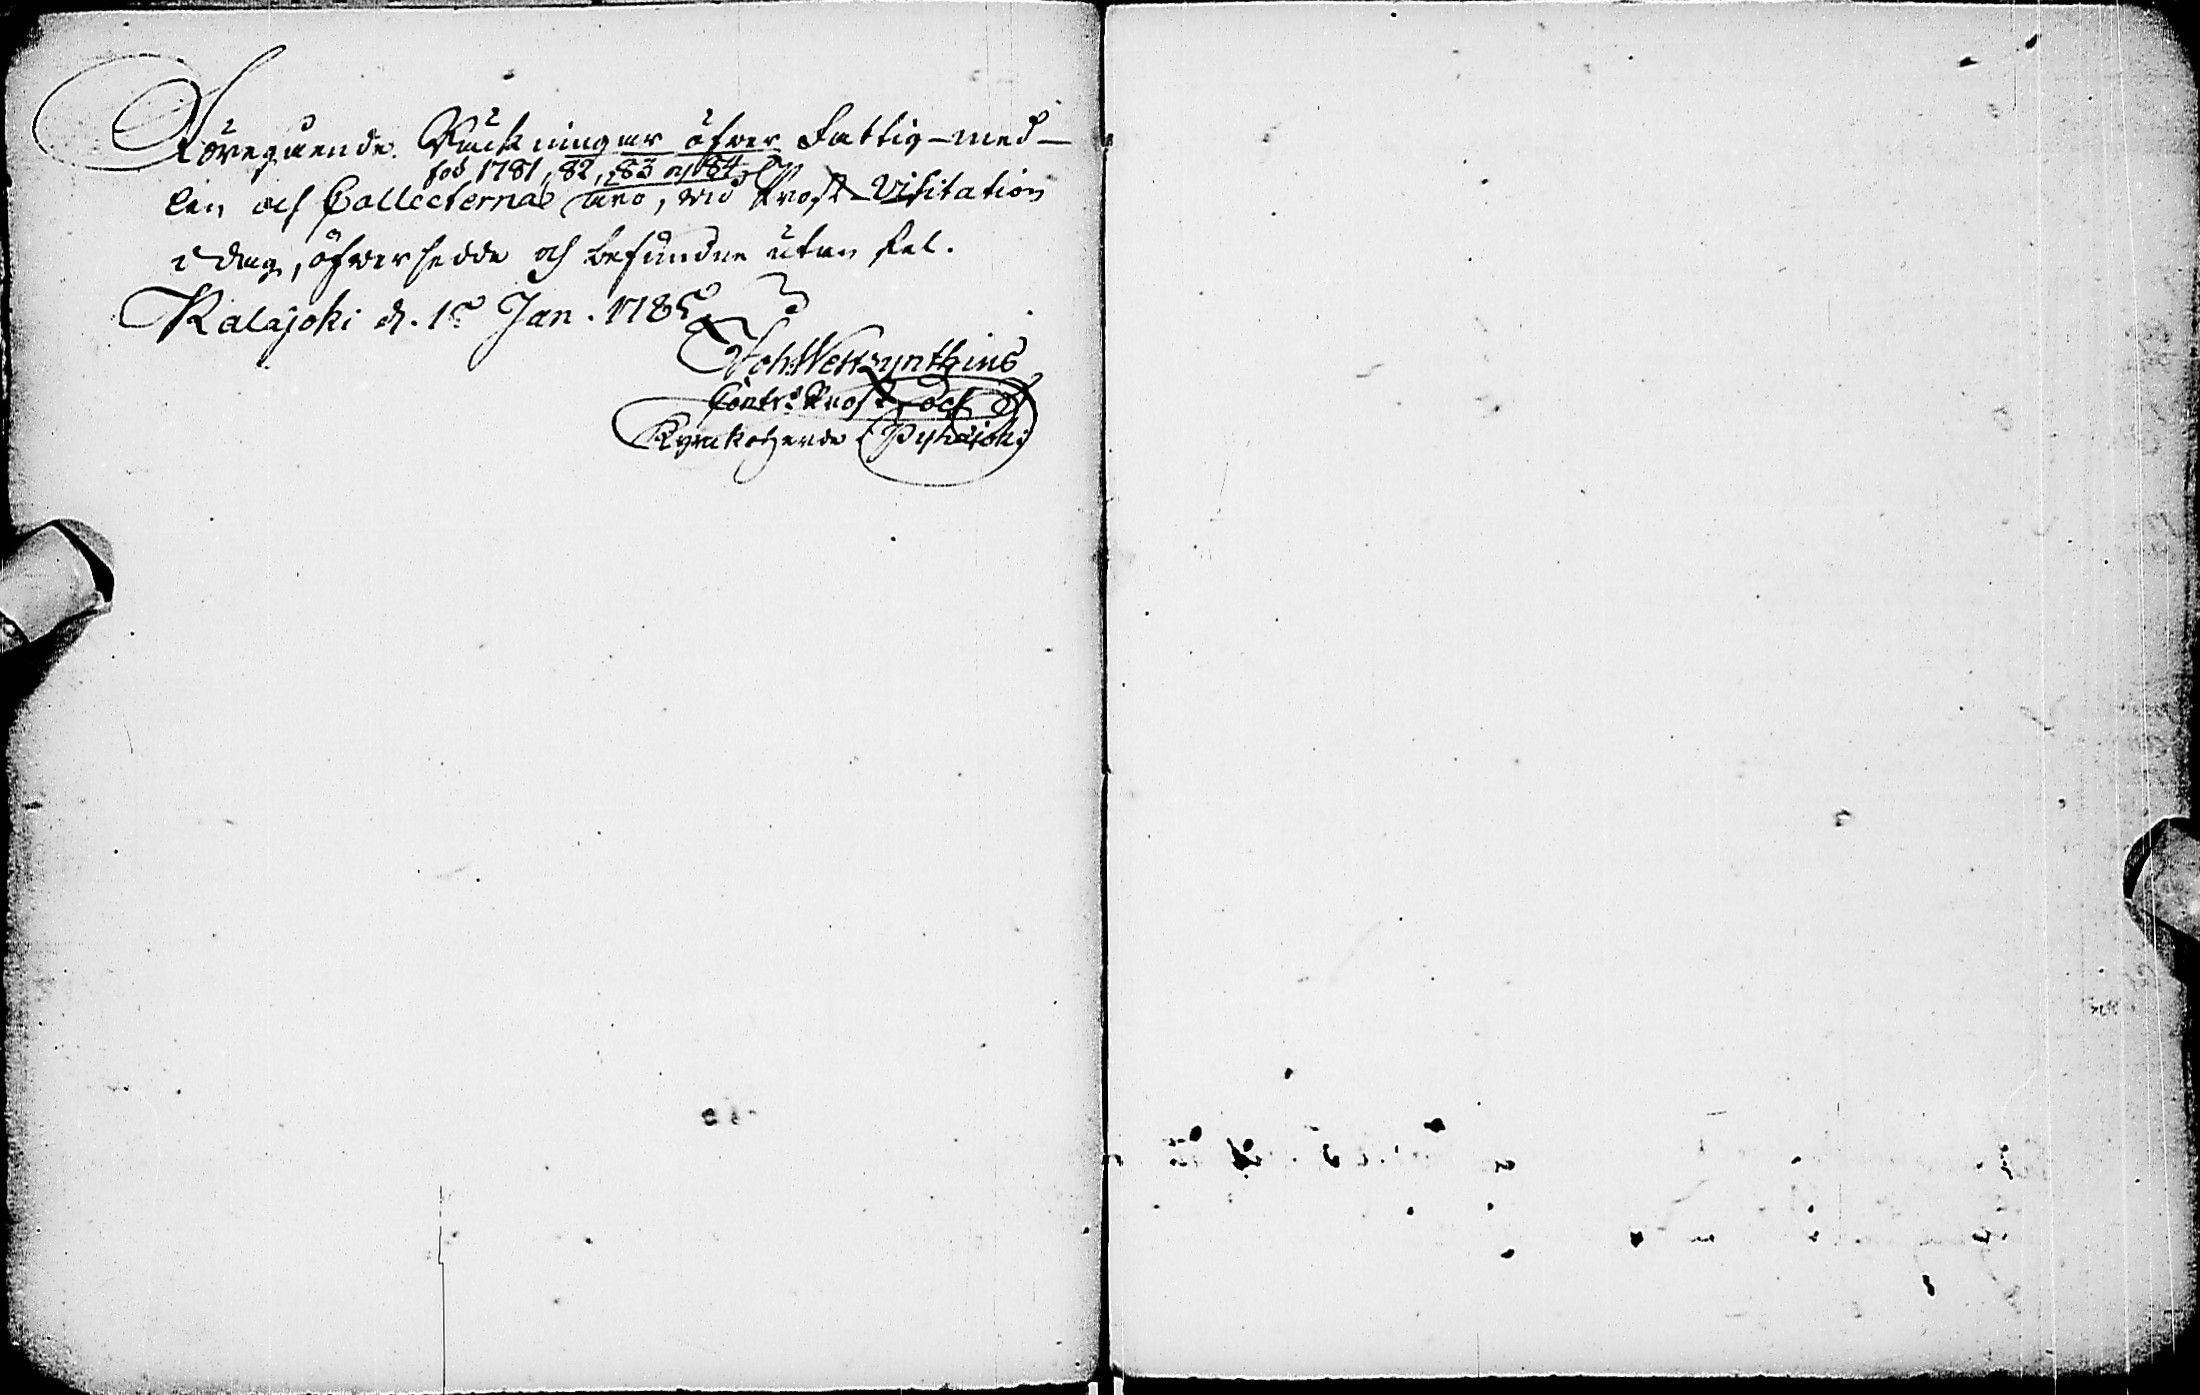 Föregående Räkningar öfver Fattig-med-
för 1781, 82, 83 och 84
len och Collecterna äro, vid Prost-Visitation
i dag, öfversedde och befundne utan fel.
Kalajoki d. 1 Jan. 1785.
Joh: Westzynthius
Contr: Prost och
Kyrckoherde i Pyhäjoki